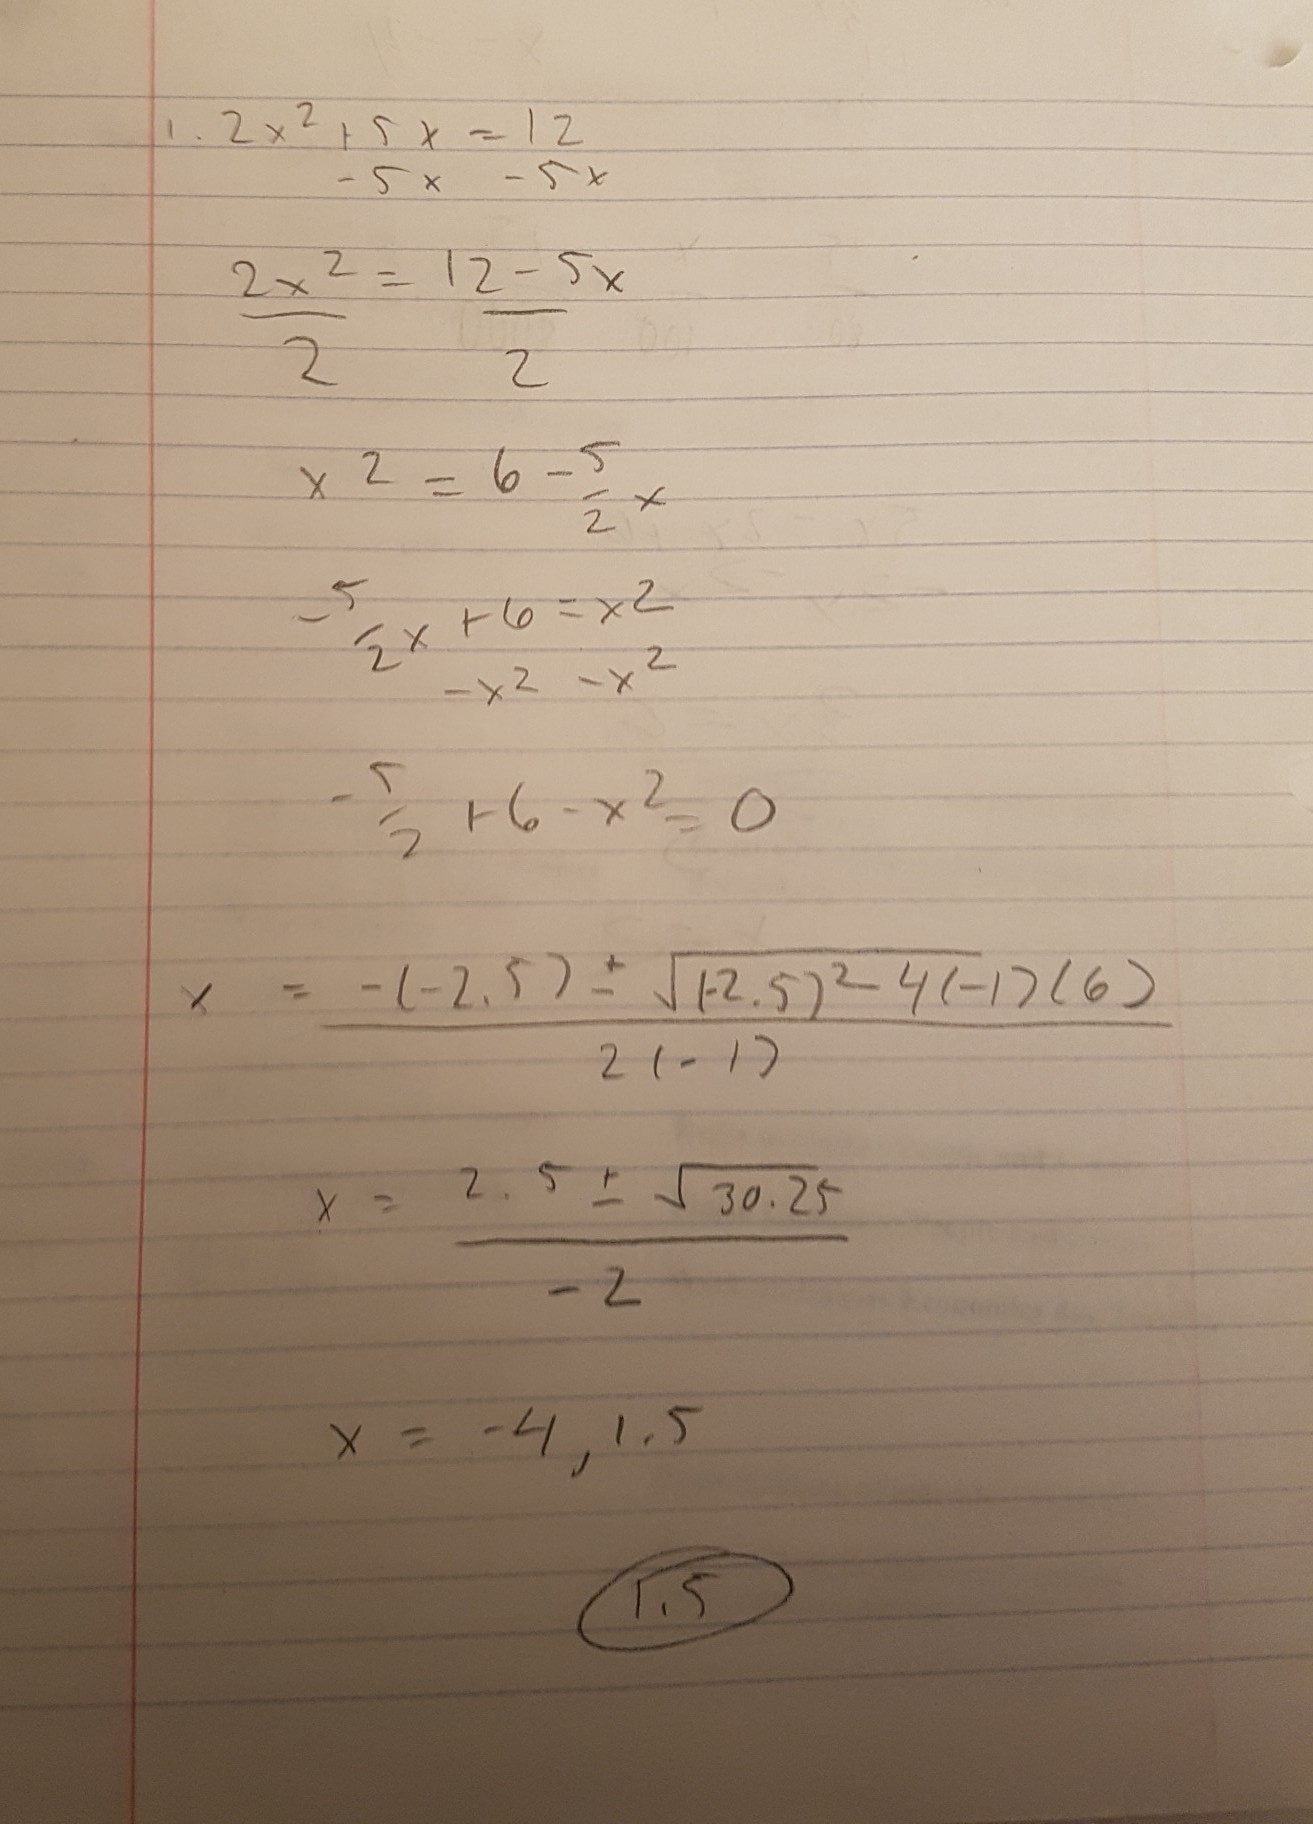 1. 2x² + 5x = 12
-5x -5x
2x² = 12 - 5x
2 2
x² = 6 - 5/2 x
-5/2 x + 6 = x²
-x² -x²
-5/2 + 6 - x² = 0
x = -(-2.5) ± √(-2.5)² - 4(-1)(6)
2(-1)
x = 2.5 ± √30.25
-2
x = -4, 1.5
1.5